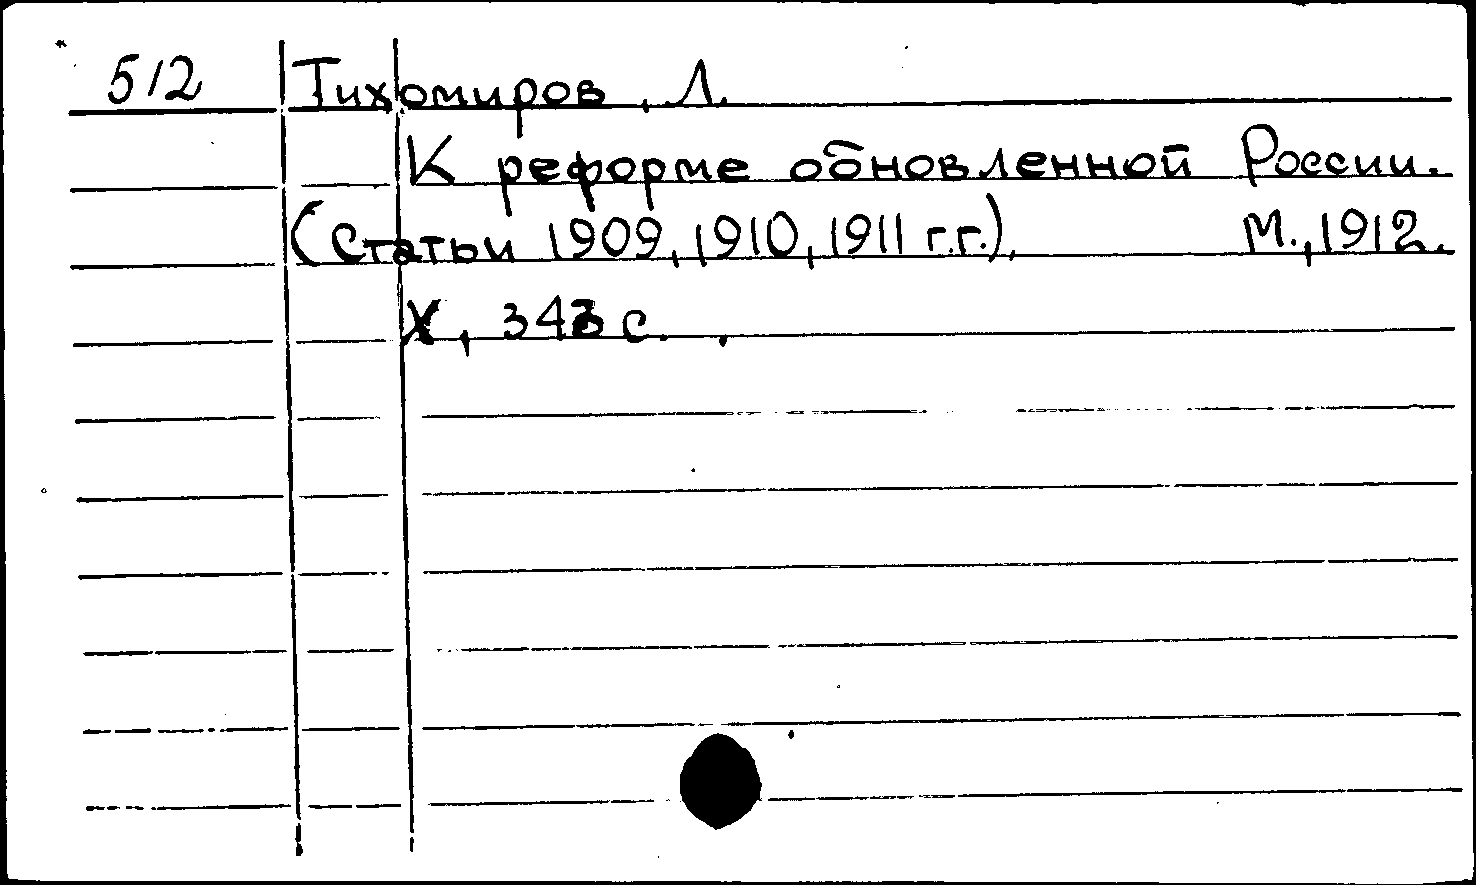 512 Тихомиров, Л.
К реформе обновленной России.
(Статьи 1909, 1910, 1911 г.г.). М., 1912.
X, 343 с.